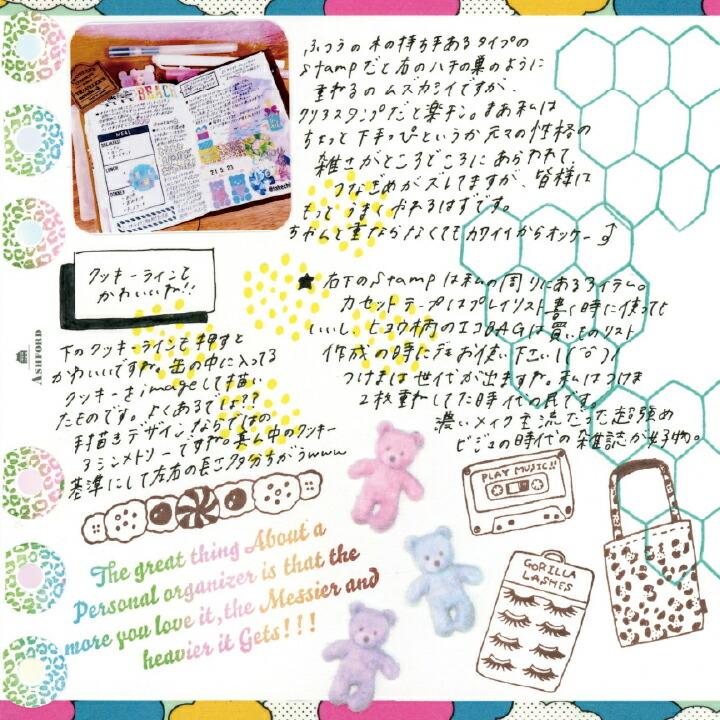 ふつうの木の持ち手あるタイプの
Stampだと右のハチの巣のように
重ねるのムズカシイですが、
クリアスタンプだと楽チン。まあ私は
ちょっと下手っぴというか元々の性格の
雑さがところどころにあらわれて、
つなぎめがズレてますが、皆様は
もっとうまくやれるはずです。
ちゃんと重ならなくてもカワイイからオッケー♪
BEACH
MEAL
BREAKFAST
LUNCH
DINNER
21.5.23
クッキーラインで
かわいいね!!
★右下のStampは私の周りにあるアイテム。
カセットテープはプレイリスト書く時に使っても
いいし、ヒョウ柄のエコBAGは買いものリスト
作成の時にでもお使い下さい
つけまは世代が出ますが、私はつけま
2枚重ねしてた時代の民です。
濃いメイク主流だった超強め
ビジュの時代の雑誌が出る物。
ASHFORD
下のクッキーラインで押すと
かわいいですね。缶の中に入ってる
クッキーをimageして描い
たものです。よくあるでしょ??
手描きデザインならではの
アシンメトリーですが真ん中のクッキー
基準にして左右の長さ多分ちがうwww
PLAY MUSIC!!
GORILLA
LASHES
The great thing About a
Personal organizer is that the
more you love it, the Messier and
heavier it Gets!!!